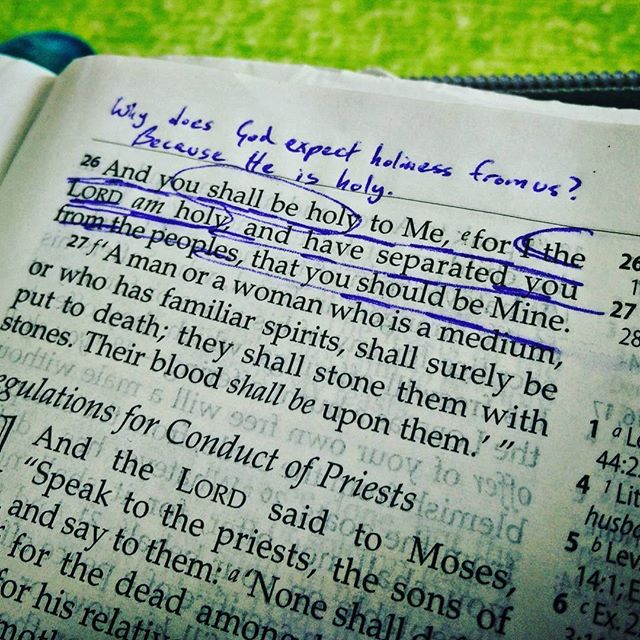 Why does God expect holiness from us?
Because He is holy.
26 And you shall be holy to Me, e for I the
LORD am holy, and have separated you
from the peoples, that you should be Mine.
27 f ‘A man or a woman who is a medium,
or who has familiar spirits, shall surely be
put to death; they shall stone them with
stones. Their blood shall be upon them.’ ”
egulations for Conduct of Priests
And the LORD said to Moses,
“Speak to the priests, the sons of
and say to them: a ‘None shall de
for the dead among
for his relativ
moth
26
1
27
28
1 a L
44:2
4 1 Lit
husba
5 b Lev
14:1; E
6 c Ex.